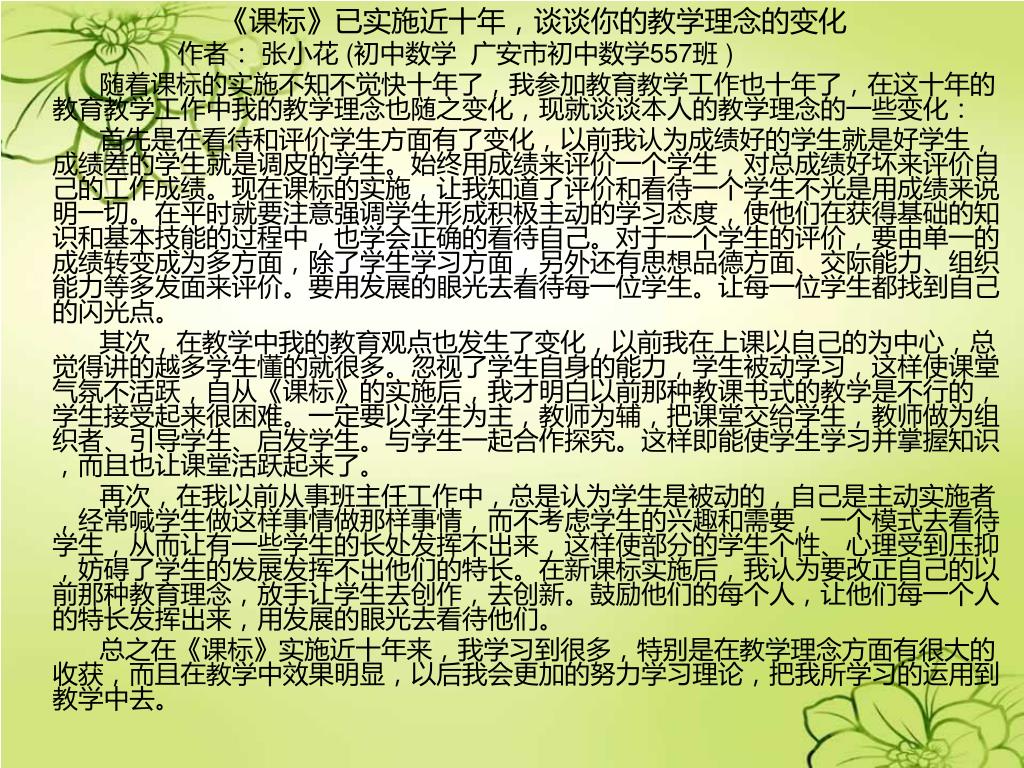 《课标》已实施近十年，谈谈你的教学理念的变化
作者： 张小花 (初中数学  广安市初中数学557班 )
随着课标的实施不知不觉快十年了，我参加教育教学工作也十年了，在这十年的
教育教学工作中我的教学理念也随之变化，现就谈谈本人的教学理念的一些变化：
首先是在看待和评价学生方面有了变化，以前我认为成绩好的学生就是好学生，
成绩差的学生就是调皮的学生。始终用成绩来评价一个学生，对总成绩好坏来评价自
己的工作成绩。现在课标的实施，让我知道了评价和看待一个学生不光是用成绩来说
明一切。在平时就要注意强调学生形成积极主动的学习态度，使他们在获得基础的知
识和基本技能的过程中，也学会正确的看待自己。对于一个学生的评价，要由单一的
成绩转变成为多方面，除了学生学习方面，另外还有思想品德方面、交际能力、组织
能力等多发面来评价。要用发展的眼光去看待每一位学生。让每一位学生都找到自己
的闪光点。
其次，在教学中我的教育观点也发生了变化，以前我在上课以自己的为中心，总
觉得讲的越多学生懂的就很多。忽视了学生自身的能力，学生被动学习，这样使课堂
气氛不活跃，自从《课标》的实施后，我才明白以前那种教课书式的教学是不行的，
学生接受起来很困难。一定要以学生为主，教师为辅，把课堂交给学生，教师做为组
织者、引导学生、启发学生。与学生一起合作探究。这样即能使学生学习并掌握知识
，而且也让课堂活跃起来了。
再次，在我以前从事班主任工作中，总是认为学生是被动的，自己是主动实施者
，经常喊学生做这样事情做那样事情，而不考虑学生的兴趣和需要，一个模式去看待
学生，从而让有一些学生的长处发挥不出来，这样使部分的学生个性、心理受到压抑
，妨碍了学生的发展发挥不出他们的特长。在新课标实施后，我认为要改正自己的以
前那种教育理念，放手让学生去创作，去创新。鼓励他们的每个人，让他们每一个人
的特长发挥出来，用发展的眼光去看待他们。
总之在《课标》实施近十年来，我学习到很多，特别是在教学理念方面有很大的
收获，而且在教学中效果明显，以后我会更加的努力学习理论，把我所学习的运用到
教学中去。